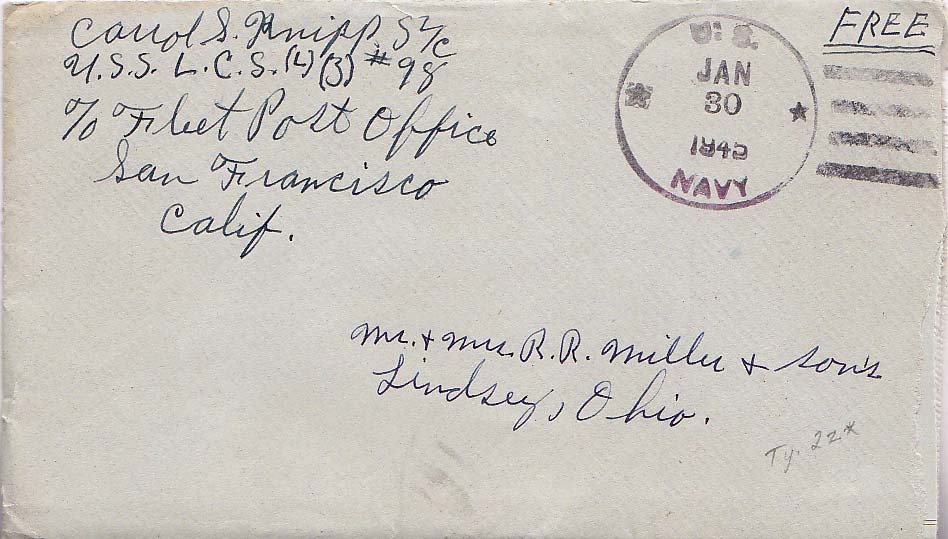 Carrol S. Knipp, S2/c
U.S.S. L.C.S.(L)(3) #98
℅ Fleet Post Office
San Francisco
Calif.
FREE
U.S.
JAN
30
1945
NAVY
Mr. + Mrs. R. R. Miller + son's
Lindsey, Ohio.
Ty. 2z*